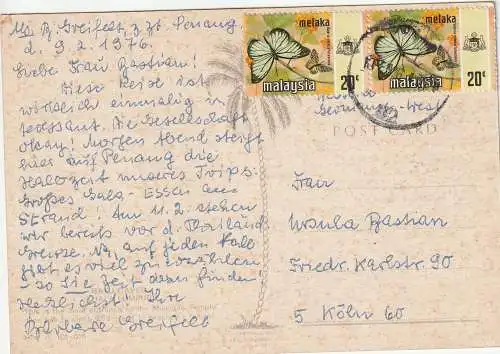 B. Greifelt, z. Zt. Penang
d. 9.2.1976.
Liebe Frau Bastian!
Diese Reise ist
wirklich einmalig in-
teressant. Die Gesellschaft
okay! Morgen Abend steigt
hier auf Penang die
Halbzeit unseres Trips:
Großes Gala-Essen am
Strand! Am 11.2. stehen
wir bereits vor d. Thailänd.
Grenze. Na, auf jeden Fall
gibt es viel zu erzählen
- so Sie Zeit dann finden.
Herzlichst! Ihre
Barbara Greifelt
melaka
malaysia
20c
melaka
malaysia
20c
POST CARD
Frau
Ursula Bastian
Friedr. Karlstr. 90
5 Köln 60